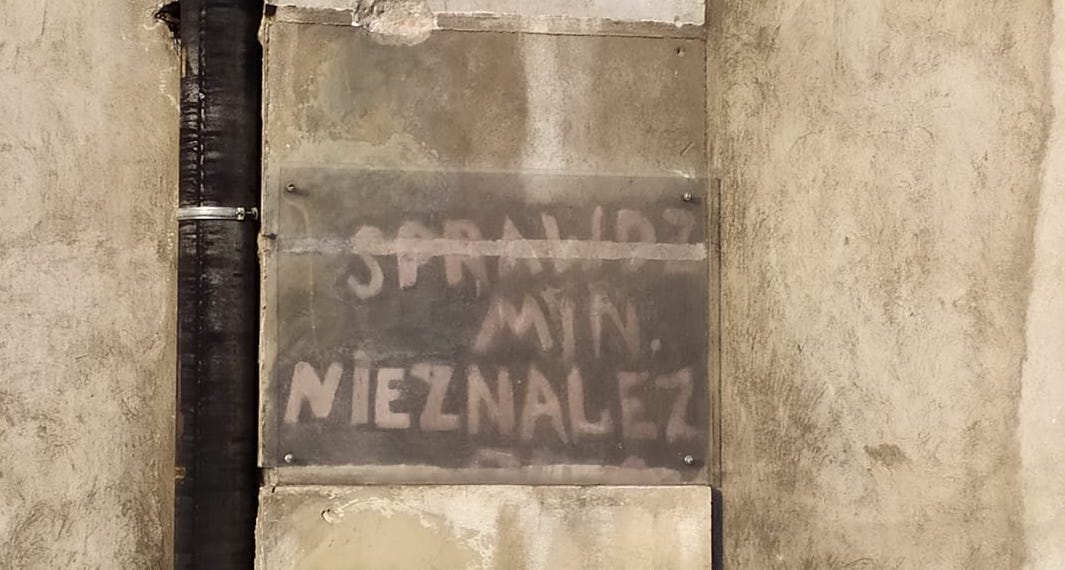 SPRAWDZ
MIN.
NIEZNALEZ